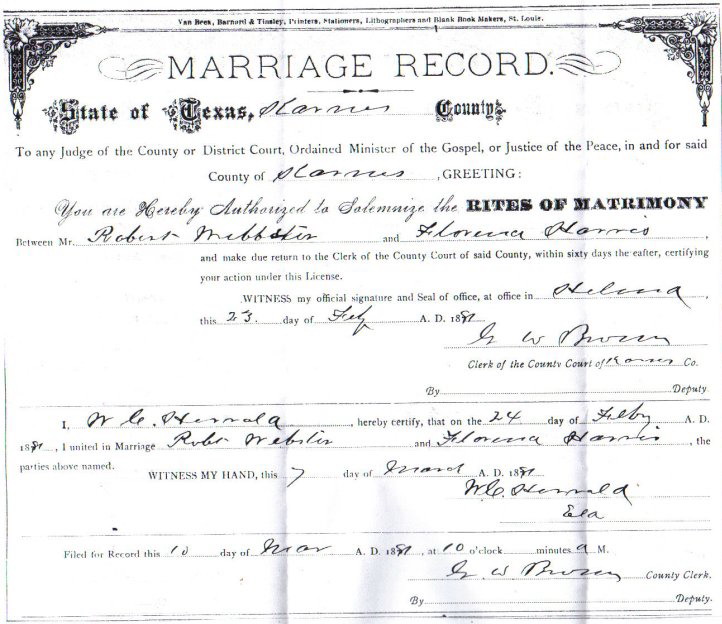 Van Beek, Barnard & Tinsley, Printers, Stationers, Lithographers and Blank Book Makers, St. Louis.
MARRIAGE RECORD.
State of Texas, Karnes County.
To any Judge of the County or District Court, Ordained Minister of the Gospel, or Justice of the Peace, in and for said
County of Karnes, GREETING:
You are Hereby Authorized to Solemnize the RITES OF MATRIMONY
Between Mr. Robert Webbster and Florena Harris,
and make due return to the Clerk of the County Court of said County, within sixty days the eafter, certifying
your action under this License.
WITNESS my official signature and Seal of office, at office in Helena,
this 23 day of Feby A. D. 18
G W Brown
Clerk of the County Court of Karnes Co.
By Deputy.
I, W C. Herrald, hereby certify, that on the 24 day of Feby A. D.
18, I united in Marriage Robt Webster and Florena Harris, the
parties above named.
WITNESS MY HAND, this 7 day of March A. D. 18
W C. Herrald
Filed for Record this 10 day of Mar A. D. 18, at 10 o'clock minutes a M.
G. W Brown County Clerk.
By Deputy.